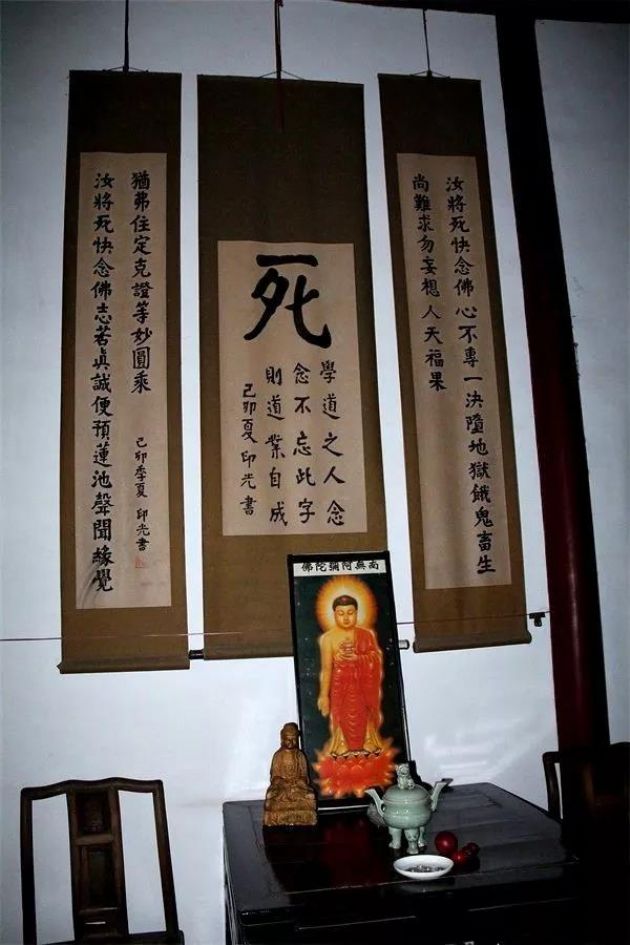 汝將死快念佛心不專一決墮地獄餓鬼畜生
尚難求勿妄想人天福果
死
學道之人念
念不忘此字
則道業自成
己卯夏印光書
汝將死快念佛志若眞誠便預蓮池聲聞緣覺
猶弗住定克證等妙圓乘
己卯季夏 印光書
南無阿彌陀佛